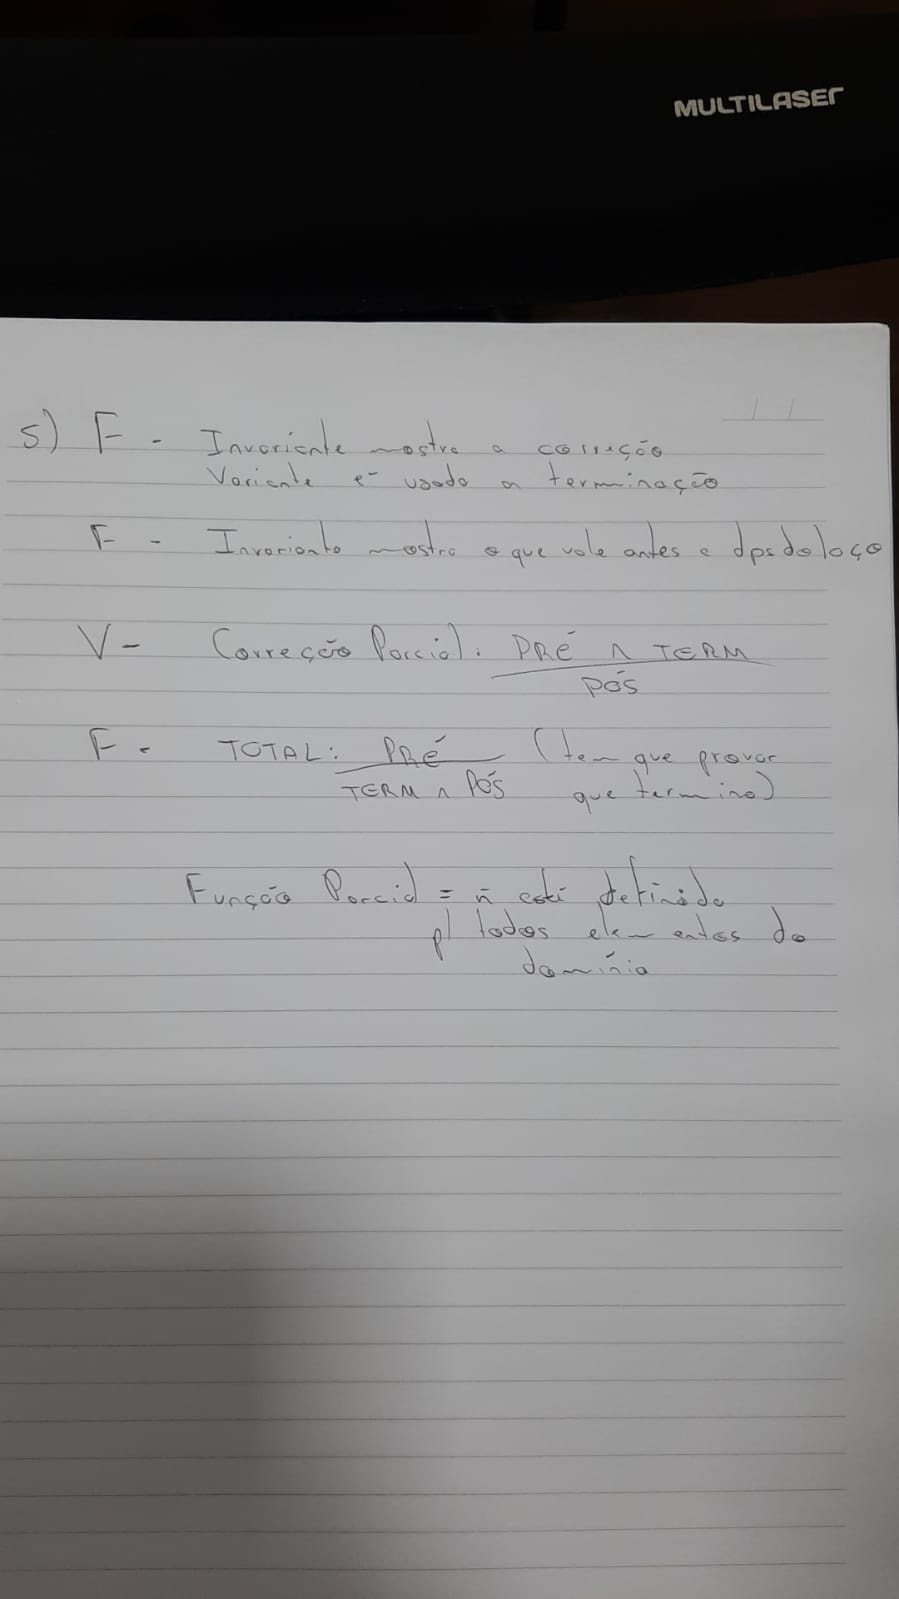 MULTILASER
5) F - Invariante mostra a correção
Variante é usado a terminação
F - Invariante mostra o que vale antes e dps do laço
V - Correção Parcial: PRÉ ∧ TERM
PÓS
F - TOTAL: PRÉ (tem que provar
TERM ∧ PÓS que termina)
Função Parcial = ñ está definida
p/ todos elementos do
domínio